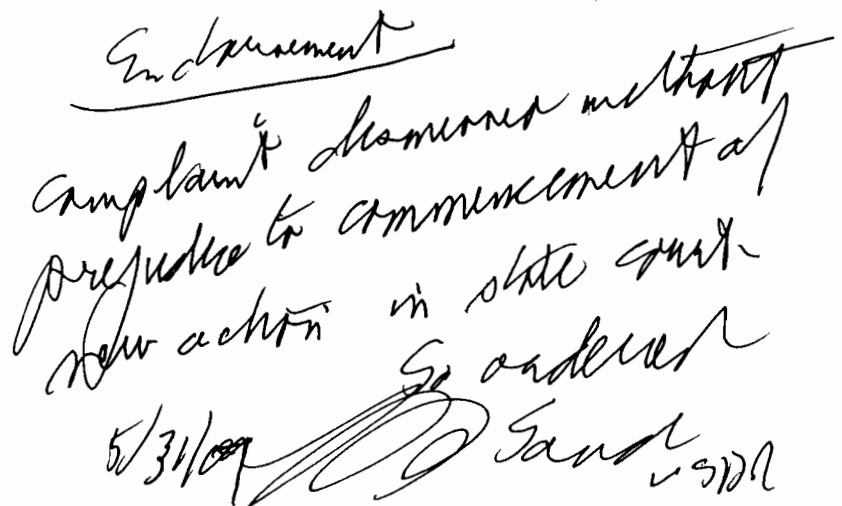 Endorsement
Complaint dismissed without
prejudice to commencement of
new action in state court.
So ordered
5/31/09 Sand
USDJ